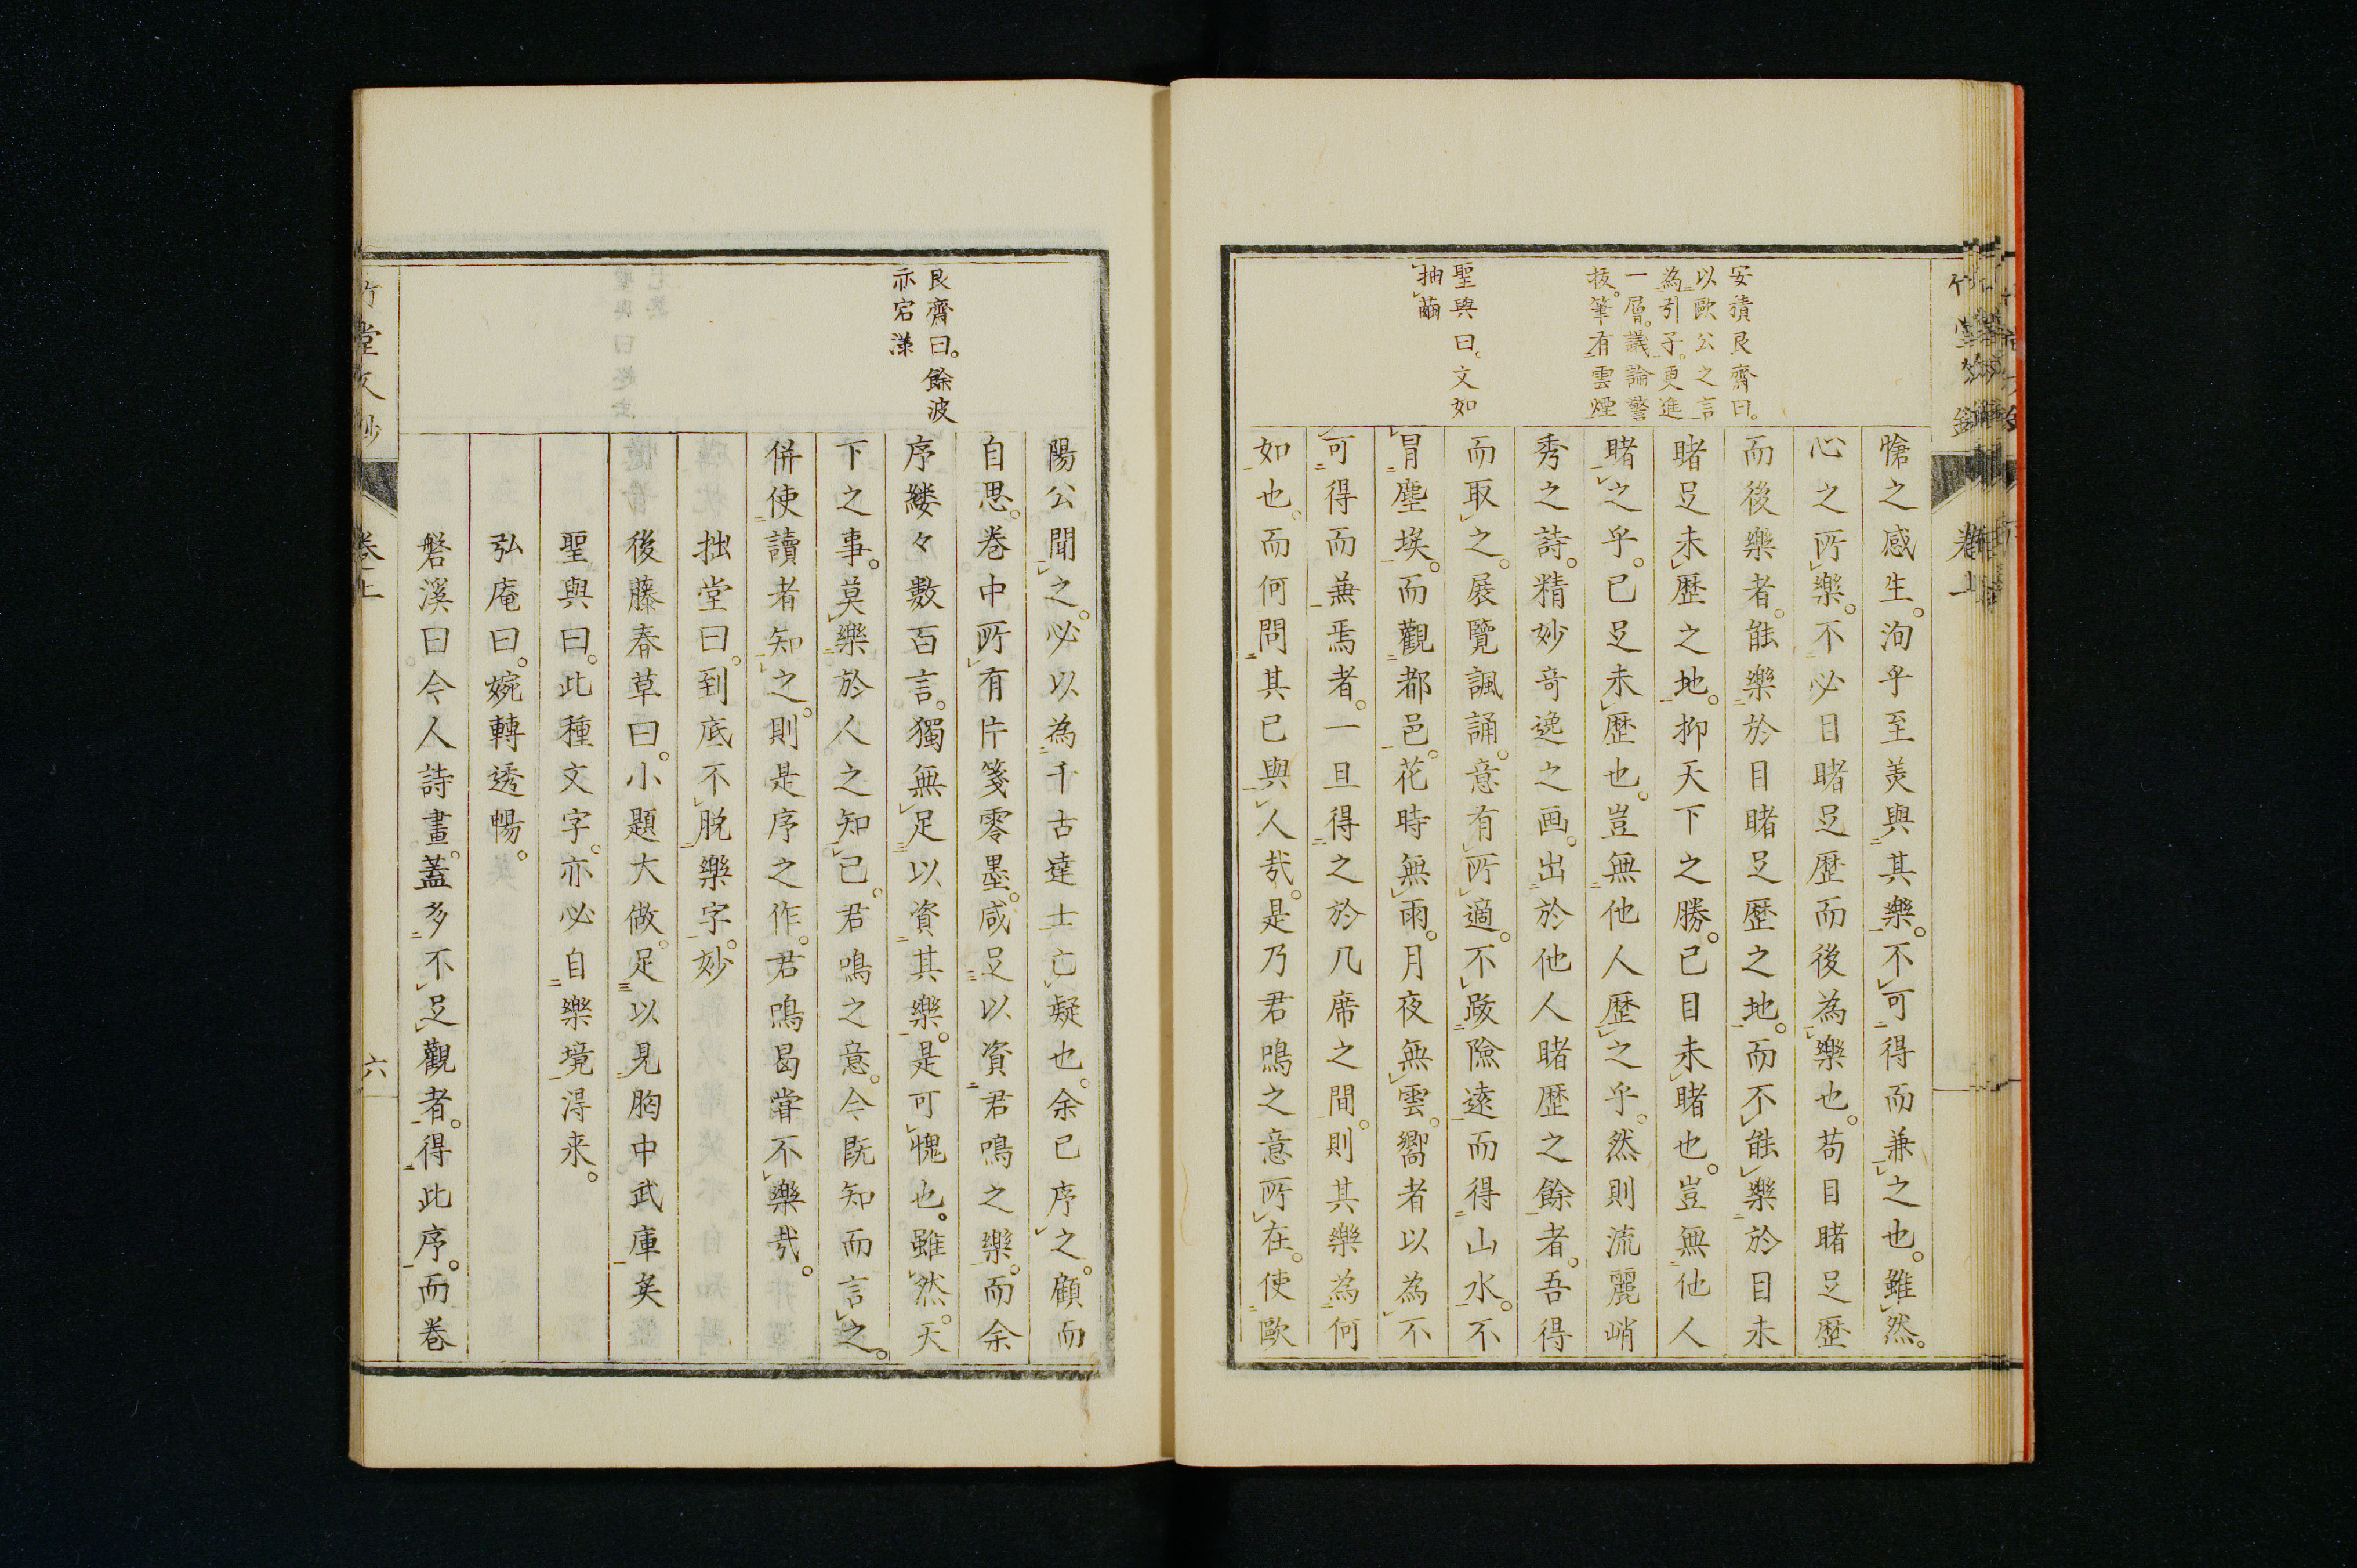 安積艮齋曰。
以歐公之言
為引子。更進
一層。議論警
抜。筆有雲煙
聖與曰。文如
抽繭
愴之感生。洵乎至美與其樂。不可得而兼之也。雖然。
心之所樂。不必目睹足歷而後為樂也。苟目睹足歷
而後樂者。能樂於目睹足歷之地。而不能樂於目未
睹足未歷之地。抑天下之勝。已目未睹也。豈無他人
睹之乎。已足未歷也。豈無他人歷之乎。然則流麗峭
秀之詩。精妙奇逸之画。出於他人睹歷之餘者。吾得
而取之。展覽諷誦。意有所適。不踐險遠而得山水。不
冒塵埃。而觀都邑。花時無雨。月夜無雲。嚮者以為不
可得而兼焉者。一旦得之於几席之間。則其樂為何
如也。而何問其已與人哉。是乃君鳴之意所在。使歐
卷上
艮齋曰。餘波
亦宕漾
陽公聞之。必以為千古達士亡疑也。余已序之。顧而
自思。卷中所有片箋零墨。咸足以資君鳴之樂。而余
序縷々數百言。獨無足以資其樂。是可愧也。雖然。天
下之事。莫樂於人之知已。君鳴之意。今既知而言之。
併使讀者知之。則是序之作。君鳴曷甞不樂哉。
拙堂曰。到底不脱樂字。妙
後藤春草曰。小題大做。足以見胸中武庫矣
聖與曰。此種文字。亦必自樂境得来。
弘庵曰。婉轉透暢。
磐溪曰今人詩畫。蓋多不足觀者。得此序。而卷
竹堂文鈔
卷上
六